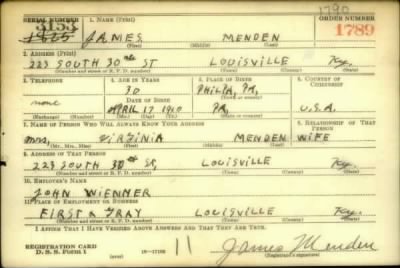 1790
SERIAL NUMBER 1. NAME (Print) ORDER NUMBER
3153
1825 JAMES MENDEN 1789
(First) (Middle) (Last)
2. ADDRESS (Print)
223 SOUTH 30th ST LOUISVILLE Ky.
(Number and street or R. F. D. number) (Town) (County) (State)
3. TELEPHONE 4. AGE IN YEARS 5. PLACE OF BIRTH 6. COUNTRY OF CITIZENSHIP
30 PHILA, PA,
none DATE OF BIRTH (Town or county)
APRIL 17 1910 PA, U.S.A.
(Exchange) (Number) (Mo.) (Day) (Yr.) (State or country)
7. NAME OF PERSON WHO WILL ALWAYS KNOW YOUR ADDRESS 8. RELATIONSHIP OF THAT PERSON
Mrs VIRGINIA MENDEN WIFE
(Mr., Mrs., Miss) (First) (Middle) (Last)
9. ADDRESS OF THAT PERSON
223 SOUTH 30th ST, LOUISVILLE Ky.
(Number and street or R. F. D. number) (Town) (County) (State)
10. EMPLOYER'S NAME
JOHN WIENNER
11. PLACE OF EMPLOYMENT OR BUSINESS
FIRST & GRAY LOUISVILLE Ky.
(Number and street or R. F. D. number) (Town) (County) (State)
I AFFIRM THAT I HAVE VERIFIED ABOVE ANSWERS AND THAT THEY ARE TRUE.
REGISTRATION CARD
D. S. S. Form 1 11 James Menden
(Registrant's signature)